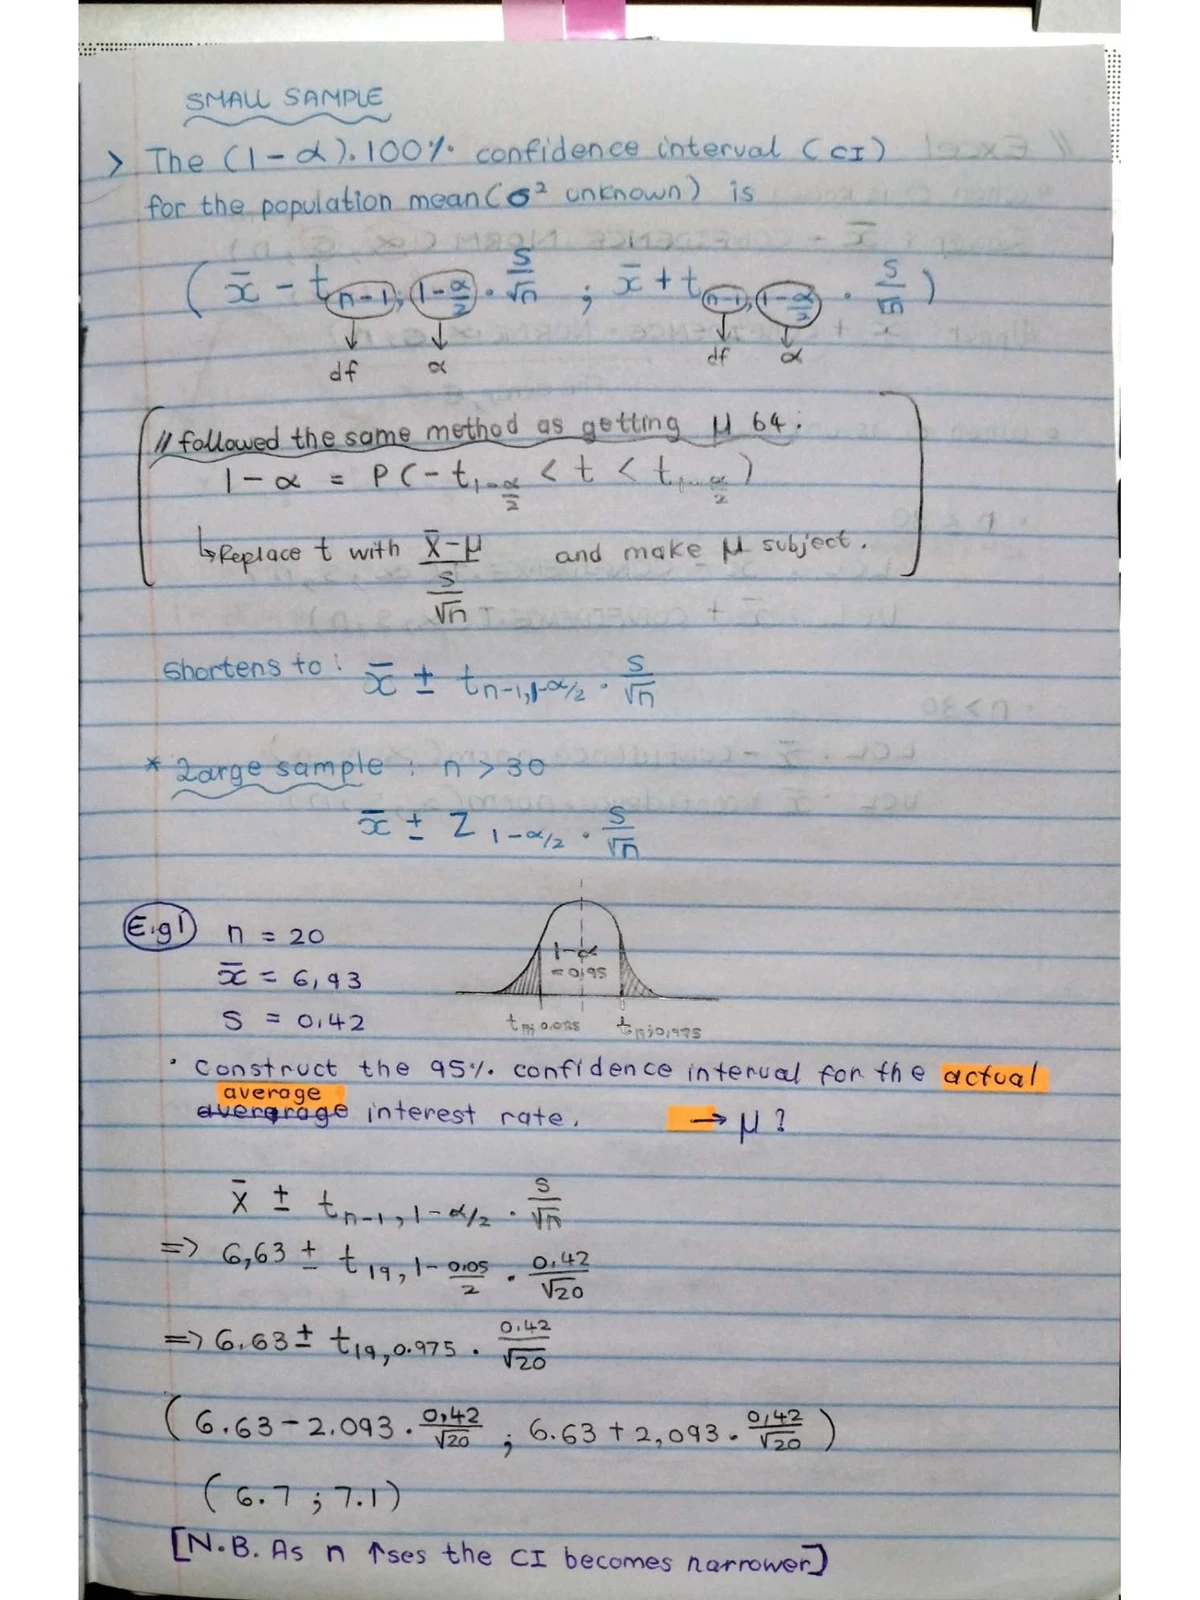 SMALL SAMPLE
> The (1-α).100% confidence interval (CI)
for the population mean (σ² unknown) is
( x̄ - t n-1; 1-α/2 · s/√n ; x̄ + t n-1; 1-α/2 · s/√n )
df α df α
// followed the same method as getting μ 64:
1-α = P(-t 1-α/2 < t < t 1-α/2)
↳ Replace t with (x̄-μ)/(s/√n) and make μ subject.
Shortens to: x̄ ± t n-1, 1-α/2 · s/√n
* Large sample : n > 30
x̄ ± Z 1-α/2 · s/√n
E.g1 n = 20
x̄ = 6,93
s = 0.42
1-α
= 0,95
t n; 0.025 t n; 0,975
· Construct the 95% confidence interval for the actual
average
averarage interest rate. → μ ?
x̄ ± t n-1, 1-α/2 · s/√n
=> 6,63 ± t 19, 1-0.05/2 · 0.42/√20
=> 6.63 ± t 19, 0.975 · 0.42/√20
( 6.63 - 2.093 · 0,42/√20 ; 6.63 + 2,093 · 0,42/√20 )
( 6.7 ; 7.1 )
[N.B. As n ↑ses the CI becomes narrower]